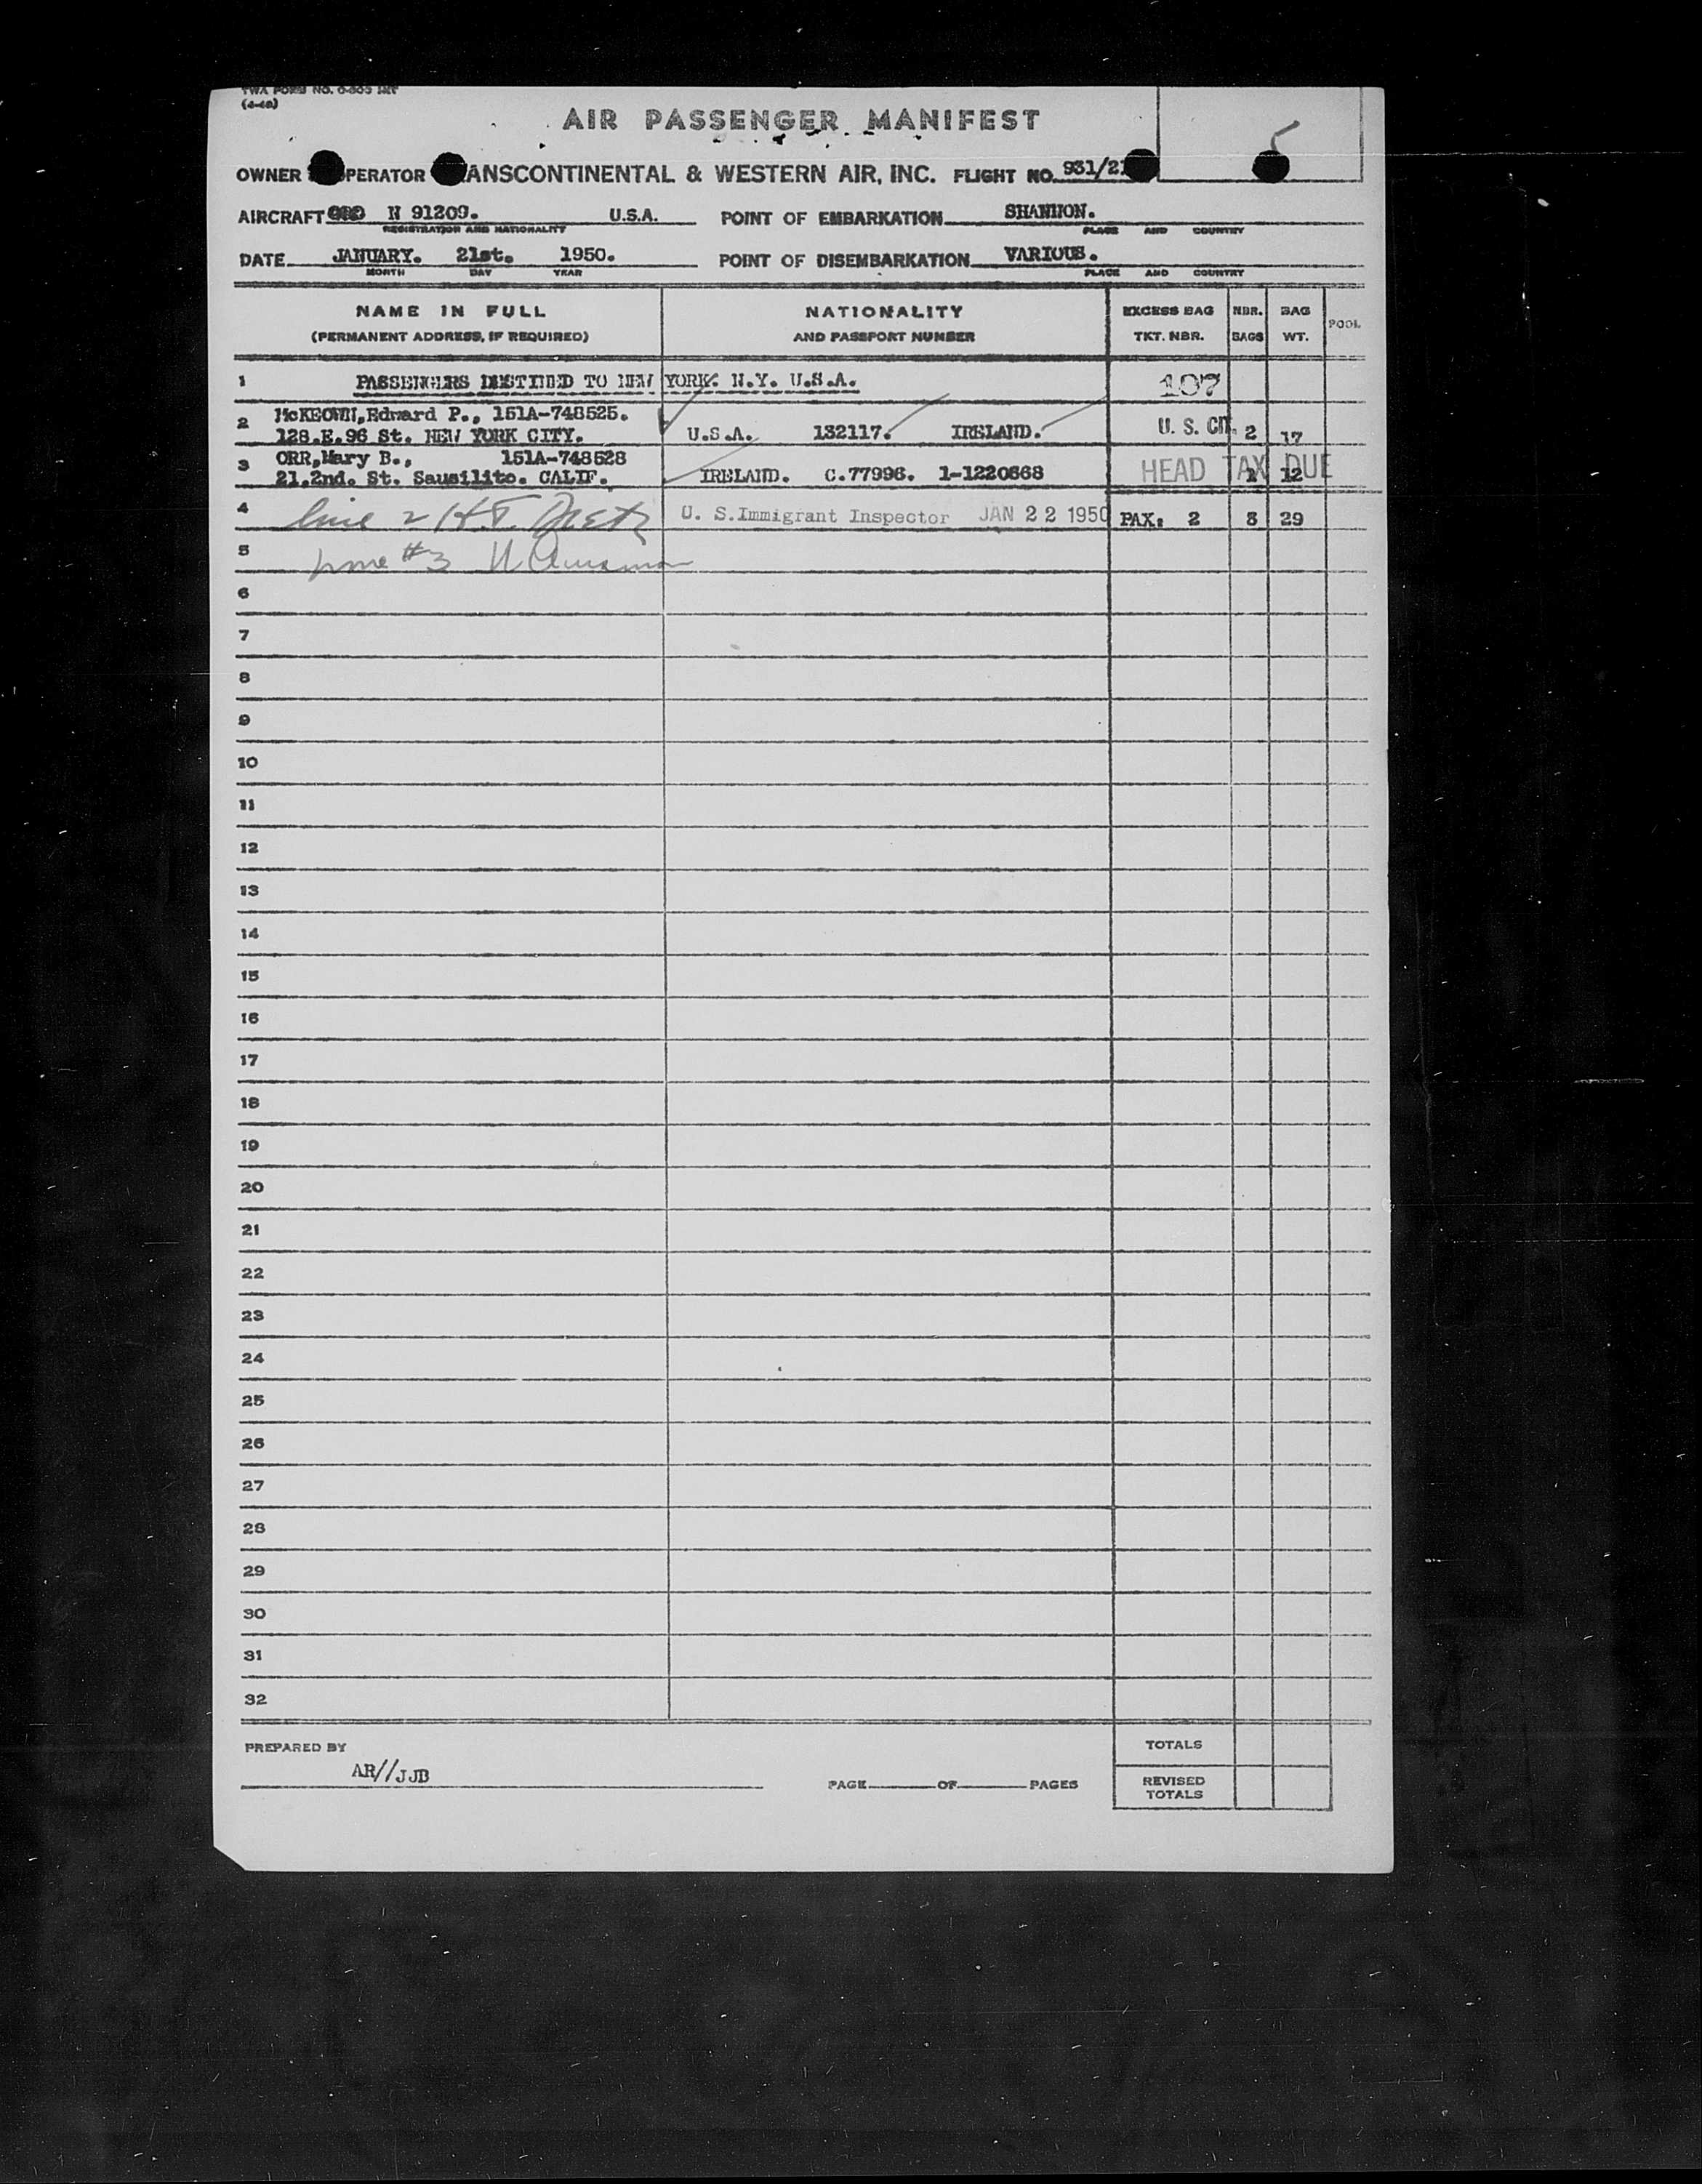 TWA FORM NO.
(4-48)
AIR PASSENGER MANIFEST
OWNER PERATOR ANSCONTINENTAL & WESTERN AIR, INC. FLIGHT NO. 931/21
AIRCRAFT N 91209. U.S.A. POINT OF EMBARKATION SHANNON.
REGISTRATION AND NATIONALITY PLACE AND COUNTRY
DATE JANUARY. 21st. 1950. POINT OF DISEMBARKATION VARIOUS.
MONTH DAY YEAR PLACE AND COUNTRY
NAME IN FULL NATIONALITY EXCESS BAG NBR. BAG POOL
(PERMANENT ADDRESS, IF REQUIRED) AND PASSPORT NUMBER TKT. NBR. BAGS WT.
1 PASSENGERS DESTINED TO NEW YORK. N.Y. U.S.A. 107
2 McKEOWN,Edward P., 151A-748525.
128.E.96 St. NEW YORK CITY. U.S.A. 132117. IRELAND. U. S. CIT. 2 17
3 ORR,Mary B., 151A-748528
21,2nd. St. Sausilito. CALIF. IRELAND. C.77996. 1-1220668 HEAD TAX DUE 1 12
4 line 2 H.T. U. S.Immigrant Inspector JAN 22 1950 PAX: 2 3 29
5 Line #3
6
7
8
9
10
11
12
13
14
15
16
17
18
19
20
21
22
23
24
25
26
27
28
29
30
31
32
PREPARED BY TOTALS
AR//JJB
PAGE OF PAGES REVISED
TOTALS